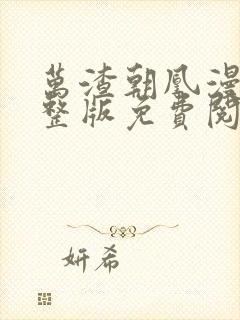 萬渣朝凰漫
整版免費閱
妍希